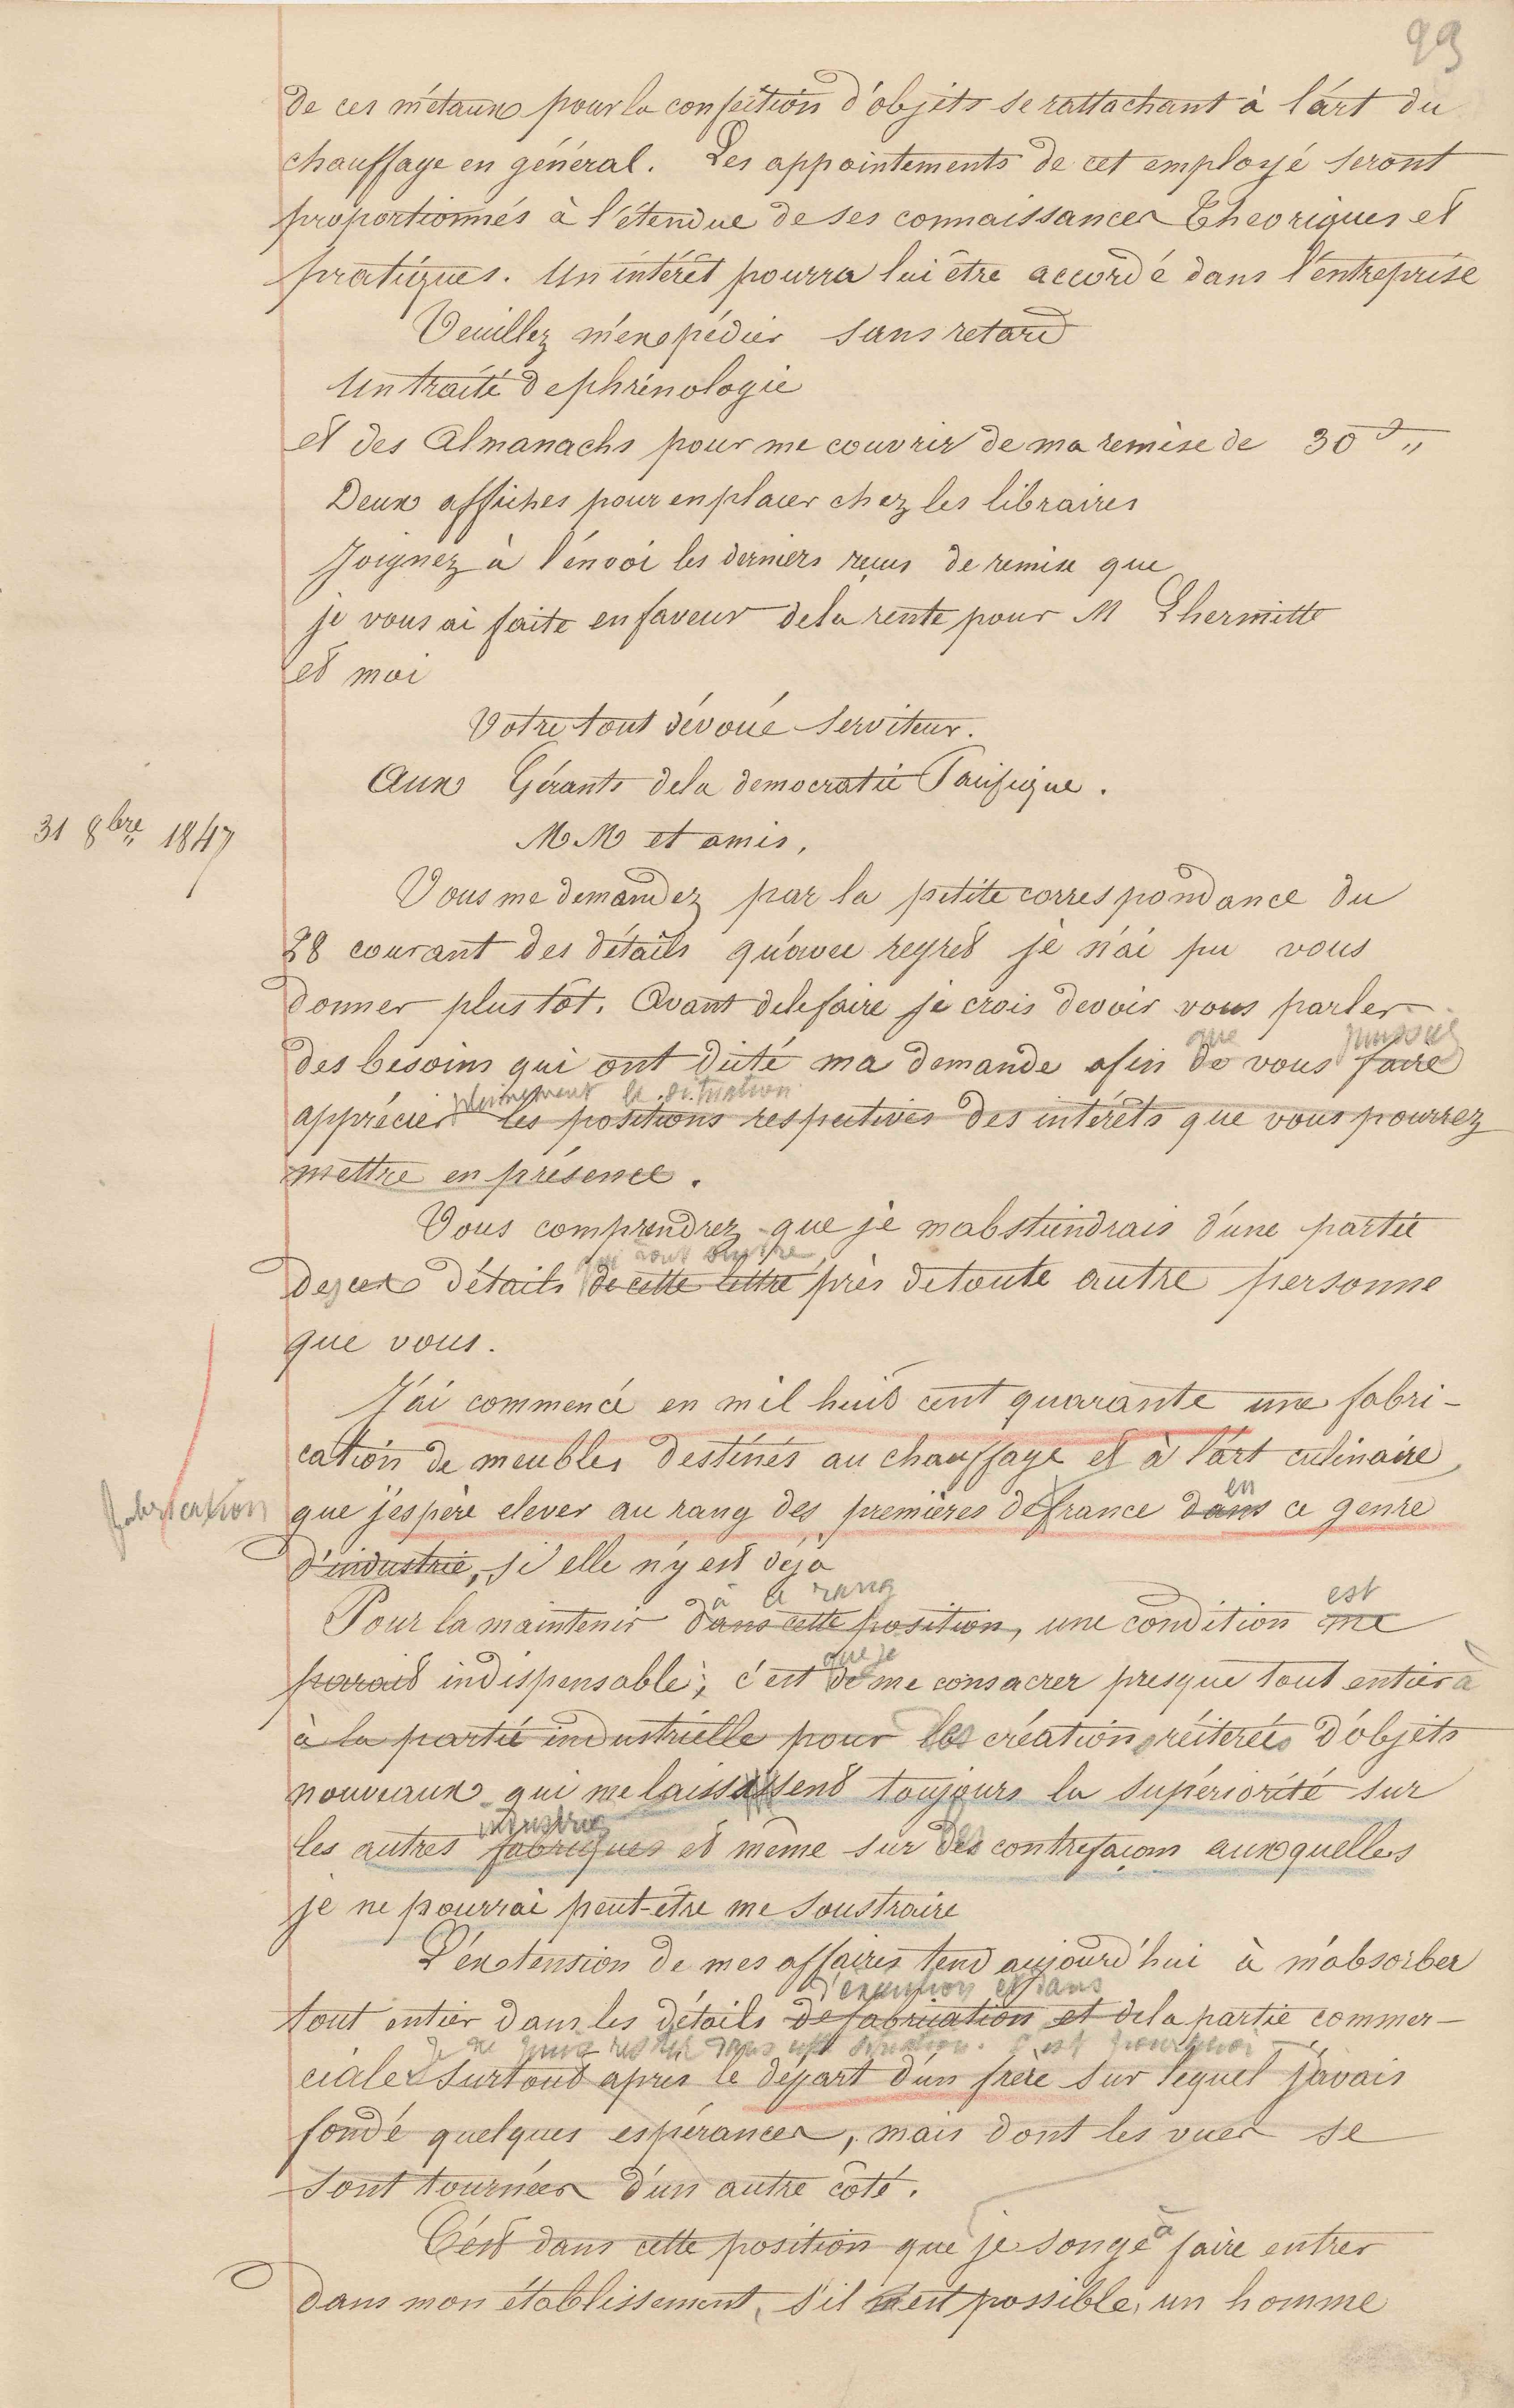 93
de ces métaux pour la confection d'objets se rattachant à l'art du
chauffage en général. Les appointements de cet employé seront
proportionnés à l'étendue de ses connaissances Théoriques et
pratiques. Un intérêt pourra lui être accordé dans l'entreprise
Veuillez m'expédier sans retard
Un traité de phrénologie
et des Almanachs pour me couvrir de ma remise de 30 f "
Deux affiches pour en placer chez les libraires
Joignez à l'envoi les derniers reçus de remise que
je vous ai faite en faveur de la rente pour M Lhermitte
et moi
Votre tout dévoué serviteur.
Aux Gérants de la democratie Pacifique.
31 8bre 1847
MM et amis,
Vous me demandez par la petite correspondance du
28 courant des détails qu'avec regret je n'ai pu vous
donner plus tôt. Avant de le faire je crois devoir vous parler
que puissiez
des besoins qui ont dicté ma demande afin de vous faire
pleinement la situation
apprécier les positions respectives des intérêts que vous pourrez
mettre en présence.
Vous comprendrez que je m'abstiendrais d'une partie
qui vont suivre
de ces détails de cette lettre près de toute autre personne
que vous.
J'ai commencé en mil huit cent quarante une fabri-
cation de meubles destinés au chauffage et à l'art culinaire
en
fabrication
que j'espère elever au rang des premières de france dans ce genre
d'industrie, si elle n'y est déja
à ce rang est
Pour la maintenir dans cette position, une condition me
que je
parait indispensable; c'est de me consacrer presque tout entier à
à la partie industrielle pour les créations réiterées d'objets
nouveaux qui me laissassent toujours la supériorité sur
industries
les autres fabriques et même sur des contrefaçons auxquelles
je ne pourrai peut-être me soustraire
L'extension de mes affaires tend aujourd'hui à m'absorber
d'exécution et dans
tout entier dans les détails de fabrication et de la partie commer-
Je ne puis rester dans cette situation. C'est pourquoi
ciale surtout après le départ d'un frère sur lequel j'avais
fondé quelques espérances, mais dont les vues se
sont tournées d'un autre côté.
à
C'est dans cette position que je songe faire entrer
dans mon établissement, s'il est possible, un homme